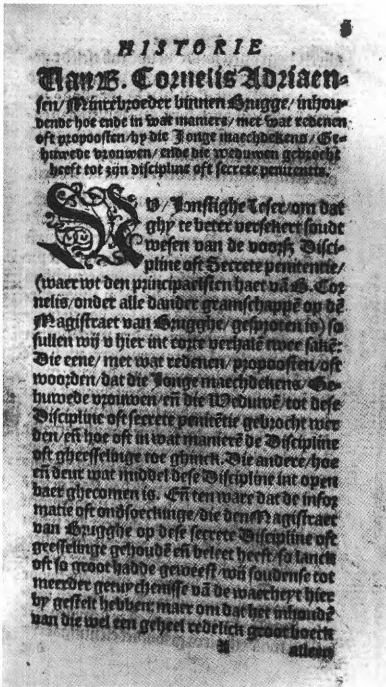 HISTORIE
Van B. Cornelis Adriaen-
sen/ Minrebroeder binnen Brugge/ inhou-
dende hoe ende in wat maniere/ met wat redenen
oft propoosten/ hy die Jonge maechdekens/ Ge-
huwede vrouwen/ ende die weduwen gebrocht
heeft tot zijn discipline oft secrete penitentie.
NU/ Jonstighe Leser/ om dat
ghy te beter versekert soudt
wesen van de voors. Disci-
pline oft Secrete penitentie/
(waer wt den principaelsten haet va B. Cor
nelis/ onder alle dander gramschappē op dē
Magistraet van Brugghe/ gesproten is) so
sullen wij v hier int corte verhalē twee sakē:
Die eene/ met wat redenen/ propoosten/ oft
woorden/ dat die Jonge maechdekens/ Ge-
huwede vrouwen/ eñ die Weduwē/ tot dese
Discipline oft secrete penitētie gebrocht wer
den/ eñ hoe oft in wat manierē de Discipline
oft gheesselinge toe ghinck. Die andere/ hoe
eñ deur wat middel dese Discipline int open
baer ghecomen is. Eñ ten ware dat de infor
matie oft ondsoeckinge/ die den Magistraet
van Brugghe op dese secrete Discipline oft
geesselinge gehoudē eñ beleet heeft/ so lanck
oft so groot hadde geweest/ wij soudense tot
meerder getuychenisse vā de waerheyt hier
by gestelt hebben: maer om dat het inhoudē
van die wel een geheel redelick groot boeck
alleen